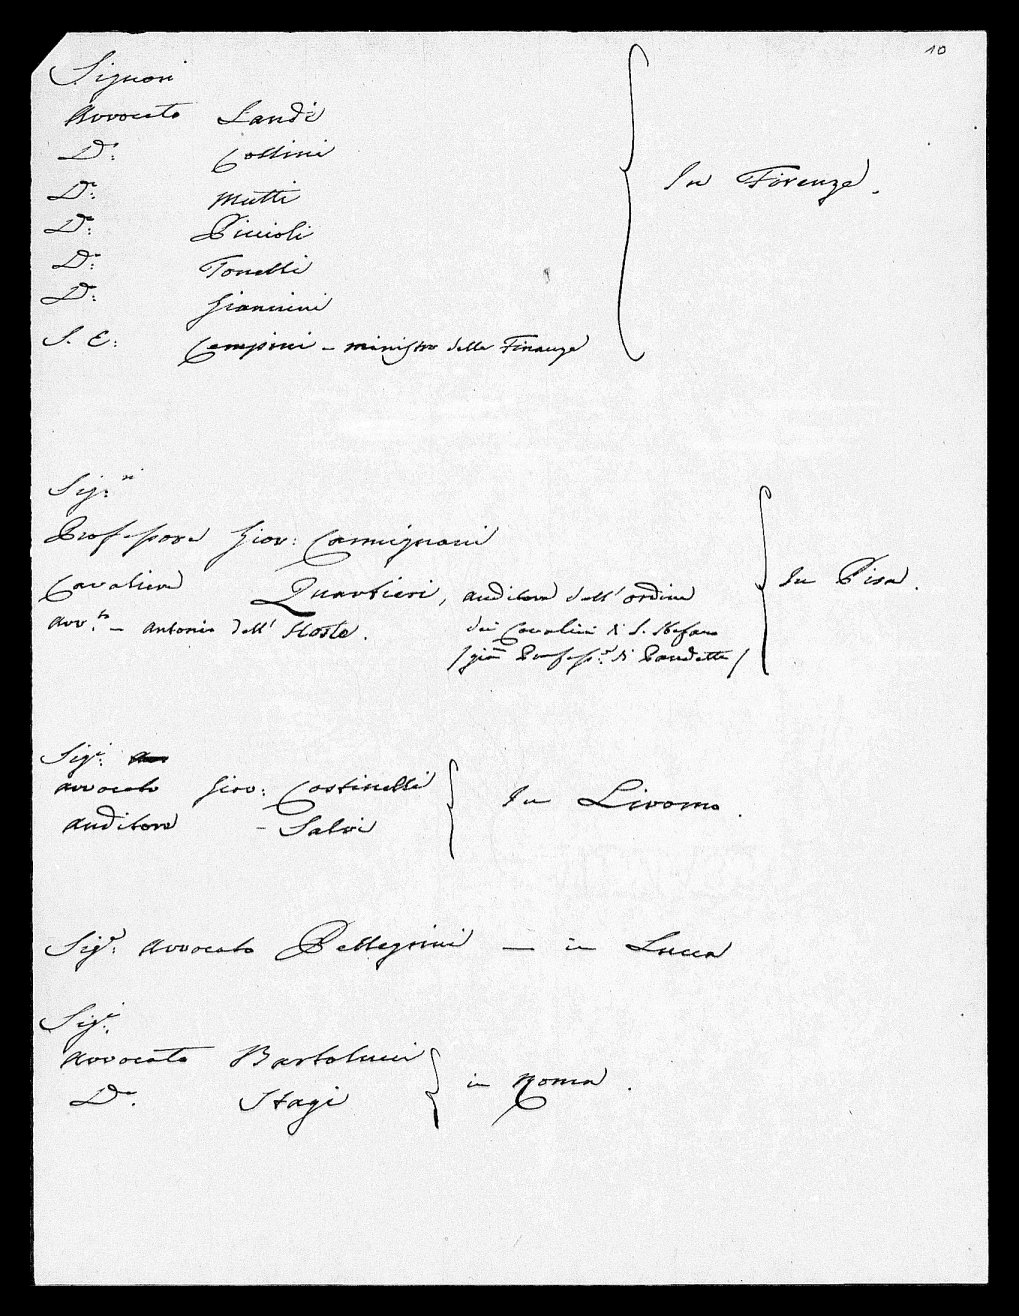 10
Signori
Avvocato Landi
D.º: Collini
D.º: Mutti
D.º: Piccioli
D.º: Tonelli
D.º: Giannini
S. E: Cempini - ministro delle Finanze
In Firenze.
Sig.ri
Professore Giov: Carmignani
Cavaliere Quartieri, auditore dell' ordine
dei Cavalieri di S. Stefano
Avv.to - Antonio dell' Hoste.
/già Profess.e di Pandette/
In Pisa.
Sig.i:
avvocato Giov: Castinelli
auditore - Salvi
In Livorno.
Sig.r: Avvocato Pellegrini — in Lucca
Sig.i:
Avvocato Bartolucci
D.º: Stagi
in Roma.